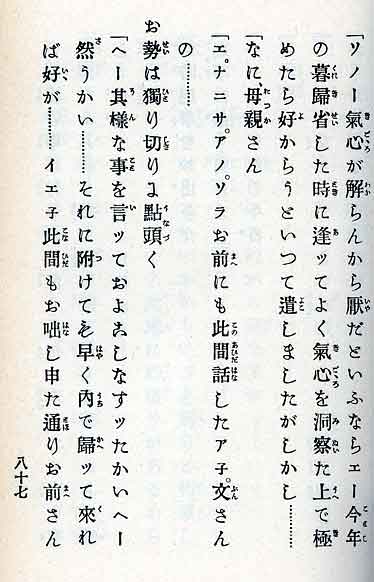 「ソノー氣心が解らんから厭だといふならエー今年
の暮歸省した時に逢ッてよく氣心を洞察た上で極
めたら好からうといつて遣しましたがしかし………
「なに母親さん
「エ。ナニサ。アノ。ソラお前にも此間話したア子。文さん
の………
お勢は獨り切りに點頭く
「へー其樣な事を言ッておよこしなすッたかいへー
然うかい………それに附けても早く內で歸ッて來れ
ば好が………イエ子此間もお咄し申た通りお前さん
八十七